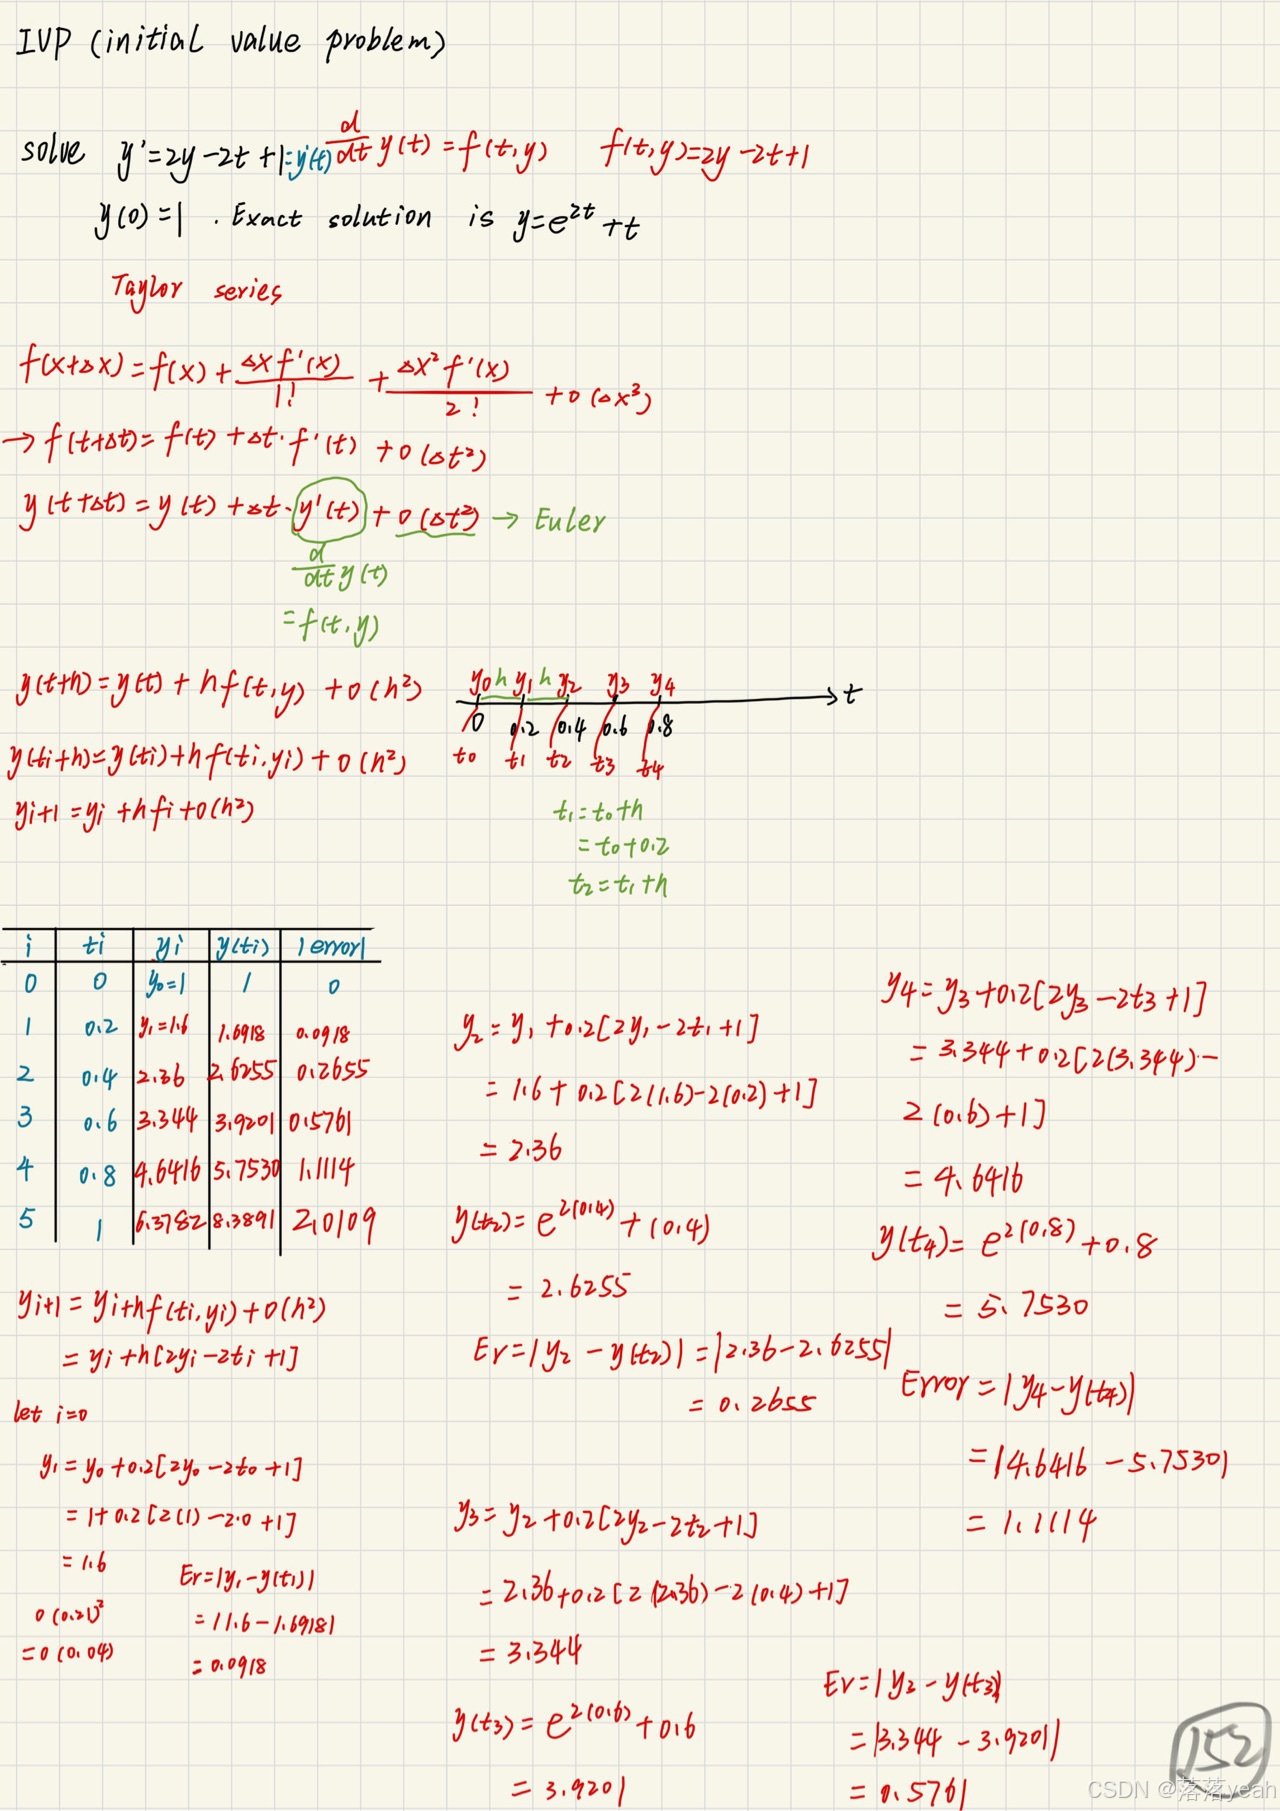 IVP (initial value problem)
solve y'=2y-2t+1=y'(t) d/dt y(t)=f(t,y) f(t,y)=2y-2t+1
y(0)=1 . Exact solution is y=e^2t+t
Taylor series
f(x+△x)=f(x)+△x f'(x)/1!+△x² f'(x)/2!+0(△x³)
→f(t+△t)=f(t)+△t·f'(t)+0(△t²)
y(t+△t)=y(t)+△t·y'(t)+0(△t²)→Euler
d/dt y(t)
=f(t,y)
y(t+h)=y(t)+hf(t,y)+0(h²)
y(ti+h)=y(ti)+hf(ti,yi)+0(h²)
yi+1=yi+hfi+0(h²)
y0 h y1 h y2 y3 y4
0 0.2 0.4 0.6 0.8 t
t0 t1 t2 t3 t4
t1=t0+h
=t0+0.2
t2=t1+h
i ti yi y(ti) |error|
0 0 y0=1 1 0
1 0.2 y1=1.6 1.6918 0.0918
2 0.4 2.36 2.6255 0.2655
3 0.6 3.344 3.9201 0.5761
4 0.8 4.6416 5.7530 1.1114
5 1 6.3782 8.3891 2.0109
yi+1=yi+hf(ti,yi)+0(h²)
=yi+h[2yi-2ti+1]
let i=0
y1=y0+0.2[2y0-2t0+1]
=1+0.2[2(1)-2·0+1]
=1.6
0(0.2)²
=0(0.04)
Er=|y1-y(t1)|
=|1.6-1.6918|
=0.0918
y2=y1+0.2[2y1-2t1+1]
=1.6+0.2[2(1.6)-2(0.2)+1]
=2.36
y(t2)=e^2(0.4)+(0.4)
=2.6255
Er=|y2-y(t2)|=|2.36-2.6255|
=0.2655
y3=y2+0.2[2y2-2t2+1]
=2.36+0.2[2(2.36)-2(0.4)+1]
=3.344
y(t3)=e^2(0.6)+0.6
=3.9201
y4=y3+0.2[2y3-2t3+1]
=3.344+0.2[2(3.344)-
2(0.6)+1]
=4.6416
y(t4)=e^2(0.8)+0.8
=5.7530
Error=|y4-y(t4)|
=|4.6416-5.7530|
=1.1114
Er=|y2-y(t3)|
=|3.344-3.9201|
=0.5761
152
CSDN @落落yeah